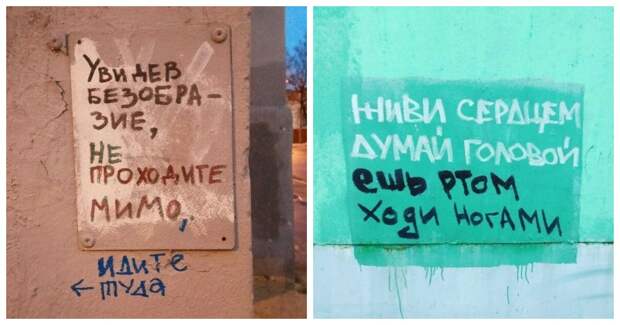 Увидев
безобра-
зие,
не
проходите
мимо,
идите
← туда
живи сердцем
думай головой
ешь ртом
ходи ногами